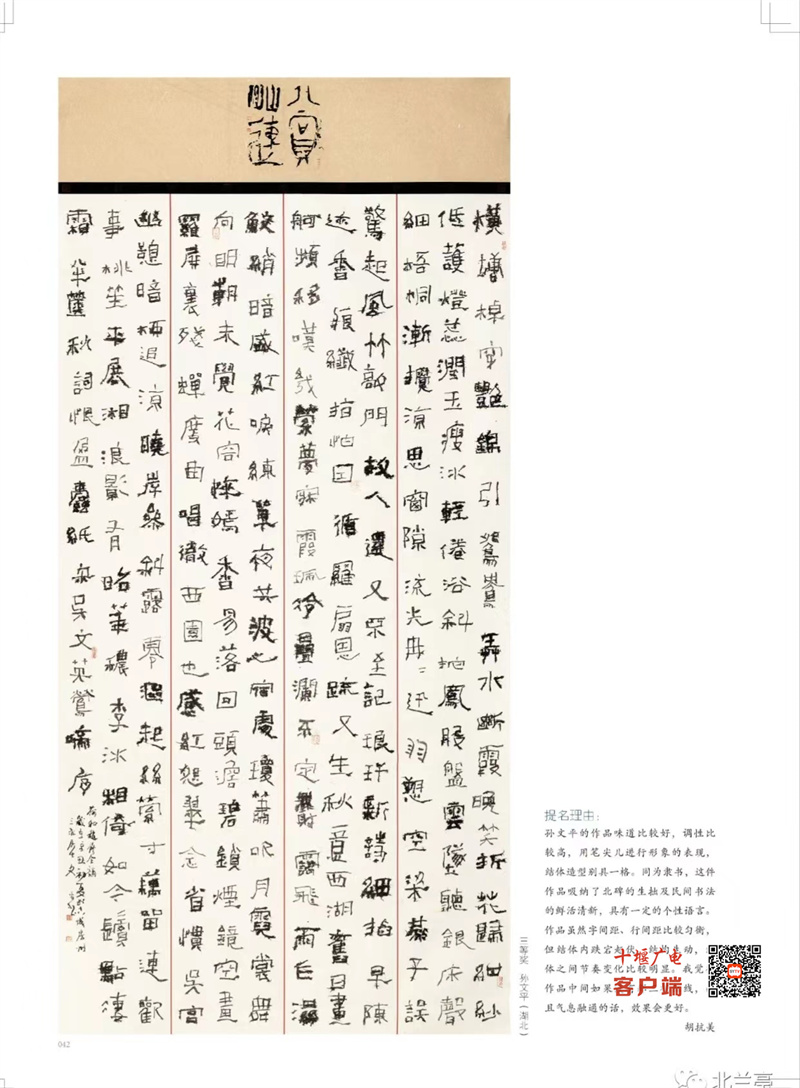 橫塘棹穿艷錦引鴛鴦弄水斷霞晚笑折花歸紺紗
低護燈蕊潤玉瘦冰輕倦浴斜拖鳳股盤雲墜聽銀床聲
細梧桐漸攪涼思窗隙流光冉〻迅羽愬空梁燕子誤
驚起風竹敲門故人還又不至記琅玕新詩細掐早陳
迹香痕纖指怕因循羅扇恩疏又生秋意西湖舊日畫
舸頻移嘆幾縈夢寐霞珮冷疊瀾不定麝靄飛雨乍濕
鮫綃暗盛紅淚練單夜共波心宿處瓊簫吹月霓裳舞
向明朝未覺花容悴嫣香易落回頭澹碧鎖煙鏡空畫
羅屏裏殘蟬度曲唱徹西園也感紅怨翠念省慣吳宮
幽憩暗柳追涼曉岸參斜露零漚起絲縈寸藕留連歡
事桃笙平展湘浪影有昭華穠李冰相倚如今鬢點淒
霜半篋秋詞恨盈蠹紙宋吳文英鶯啼序
三等奖 孙文平（湖北）
提名理由：
孙文平的作品味道比较好，调性比
较高，用笔尖儿进行形象的表现，
结体造型别具一格。同为隶书，这件
作品吸纳了北碑的生拙及民间书法
的鲜活清新，具有一定的个性语言。
作品虽然字间距、行间距比较匀衡，
但结体内跌宕起伏，结构生动，
体之间节奏变化比较明显。我觉
作品中间如果 线，
且气息融通的话，效果会更好。
胡抗美
十堰广电
客户端
042
北兰亭